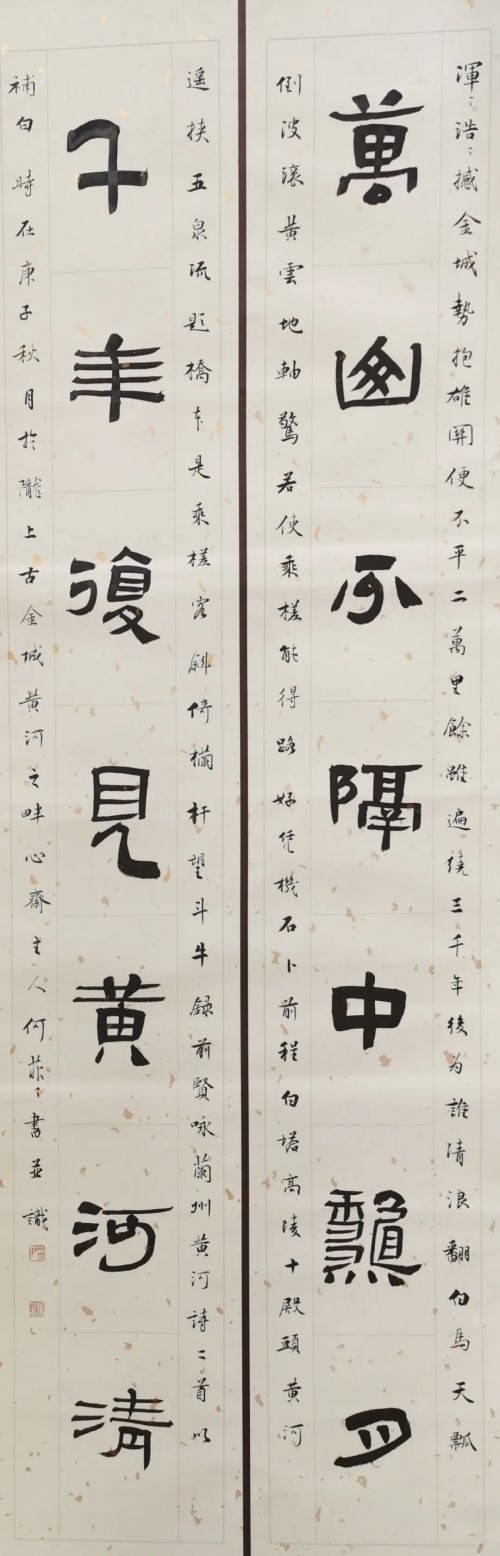 渾〻浩〻撼金城勢抱雄關便不平二萬里餘雖遍繞三千年後为誰清浪翻白馬天瓢
萬山不隔中秋月
倒波滾黃雲地軸驚若使乘槎能得路好凭機石卜前程白塔高凌十殿頭黃河
遙挾五泉流題橋本是乘槎客斜倚欄杆望斗牛録前賢咏蘭州黃河詩二首以
千年復見黃河清
補白時在庚子秋月於隴上古金城黃河之畔心齋主人何菲〻書並識